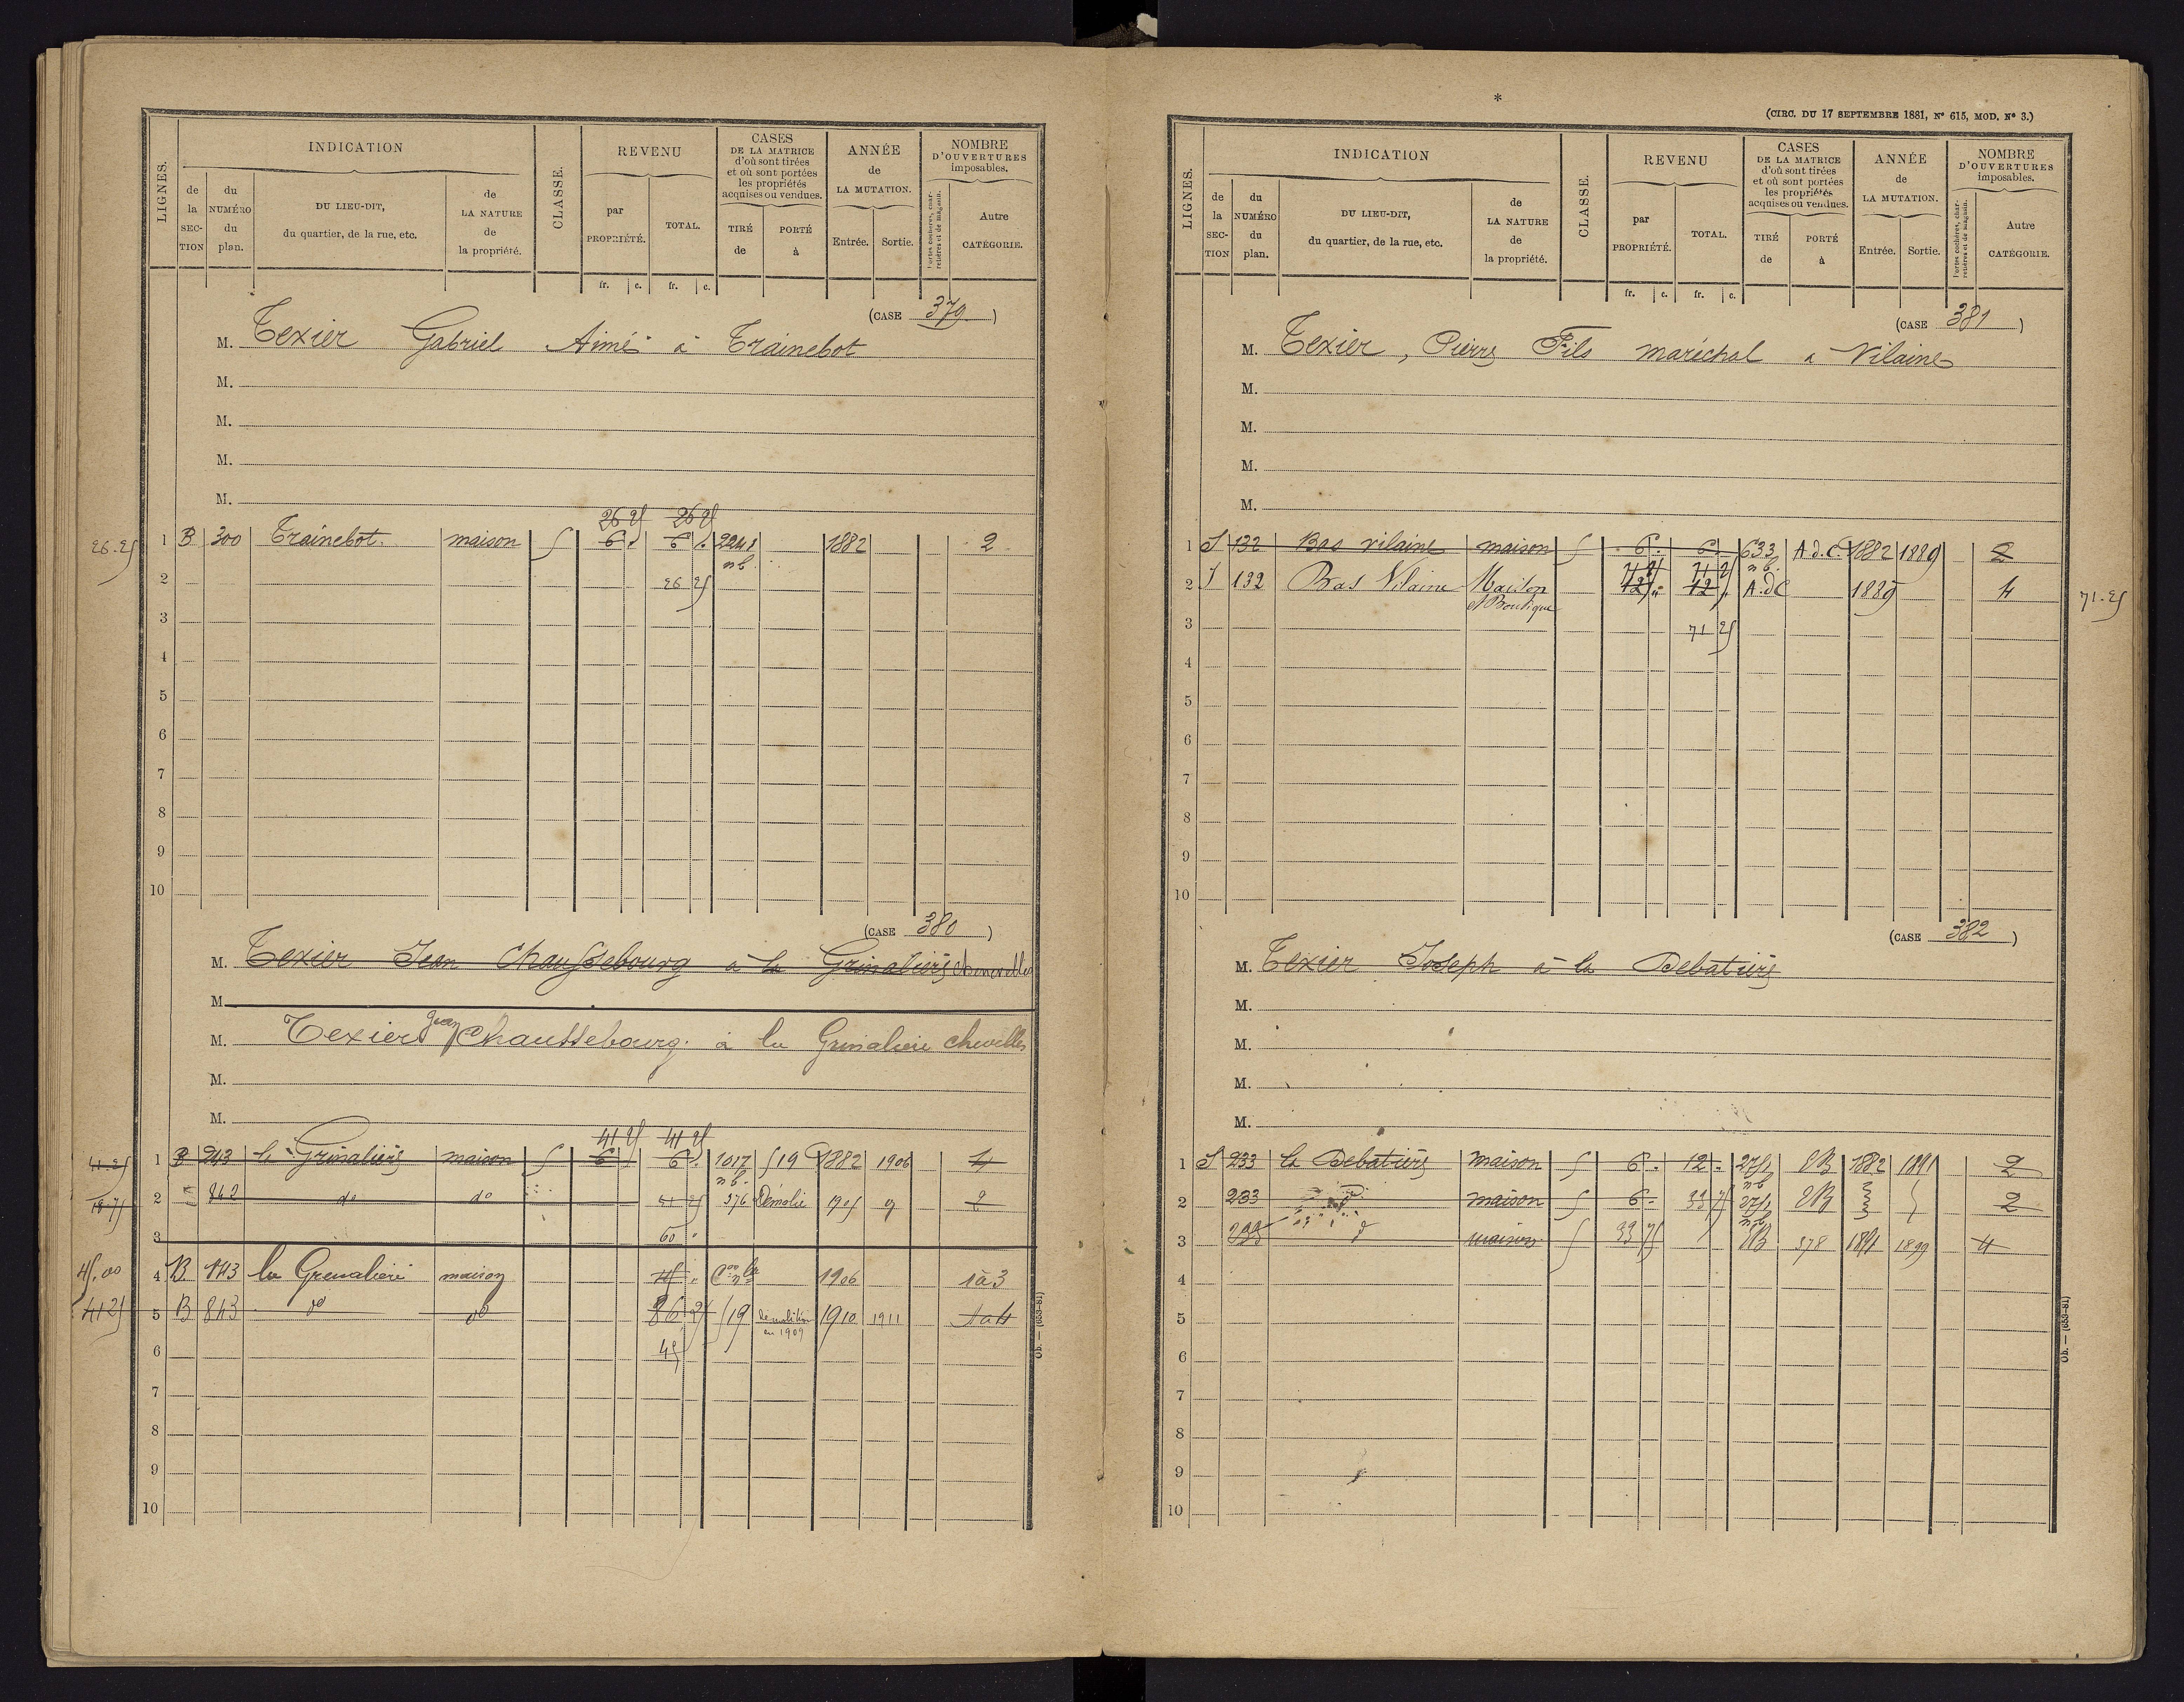 LIGNES.
INDICATION
de la SECTION
du NUMÉRO du plan.
DU LIEU-DIT, du quartier, de la rue, etc.
de LA NATURE de la propriété.
CLASSE.
REVENU
par PROPRIÉTÉ.
TOTAL.
fr. c. fr. c.
CASES DE LA MATRICE d'où sont tirées et où sont portées les propriétés acquises ou vendues.
TIRÉ de
PORTÉ à
ANNÉE de LA MUTATION.
Entrée. Sortie.
NOMBRE D'OUVERTURES imposables.
Portes cochères, charretières et de magasin.
Autre CATÉGORIE.
(CASE 379)
M. Texier Gabriel Aimé à Trainebot
M.
M.
M.
M.
26 25 26 25
26.25 1 B 300 Trainebot. maison 5 6 . 6 . 2248 1882 2
n b.
2 26 25
3
4
5
6
7
8
9
10
(CASE 380)
M. Texier Jean Chaussebourg à la Grimalière
M.
M. Texier Jean Chaussebourg. à la Grimalière
M.
M.
41 25 41 25
41.25 1 B 243 la Grimalière maison 5 6 . 6 . 1017 519 1882 1906 4
n b.
18.75 2 842 do do 376 Démolie 1905 9 2
3 60 .
45,00 4 B 843 maison 1906 1 à 3
41 25 5 B 843 do do 86 25 519 démolition en 1909 1910 1911
6 45
7
8
9
10
Ob. — (653-81)
*
(CIRC. DU 17 SEPTEMBRE 1881, N° 615, MOD. N° 3.)
LIGNES.
INDICATION
de la SECTION
du NUMÉRO du plan.
DU LIEU-DIT, du quartier, de la rue, etc.
de LA NATURE de la propriété.
CLASSE.
REVENU
par PROPRIÉTÉ.
TOTAL.
fr. c. fr. c.
CASES DE LA MATRICE d'où sont tirées et où sont portées les propriétés acquises ou vendues.
TIRÉ de
PORTÉ à
ANNÉE de LA MUTATION.
Entrée. Sortie.
NOMBRE D'OUVERTURES imposables.
Portes cochères, charretières et de magasin.
Autre CATÉGORIE.
(CASE 381)
M. Texier, Pierre Fils maréchal à Vilaine
M.
M.
M.
M.
1 J 132 Bas vilaine maison 5 6 . 6 . 633 A.d.C. 1882 1889 2
71 25 71 25 n b.
2 J 132 Bas Vilaine Maison et Boutique 12 " 12 . A.dC 1889 4 71.25
3 71 25
4
5
6
7
8
9
10
(CASE 382)
M. Texier Joseph à la Debatière
M.
M.
M.
M.
1 J 233 la Debatière maison 5 6 . 12 . 2751 RB 1882 1891 2
n b
2 233 d maison 5 6 . 33 75 2751 RB 2
n b
3 233 d maison 5 33 75 RB 378 1891 1899 4
4
5
6
7
8
9
10
Ob. — (653-81)